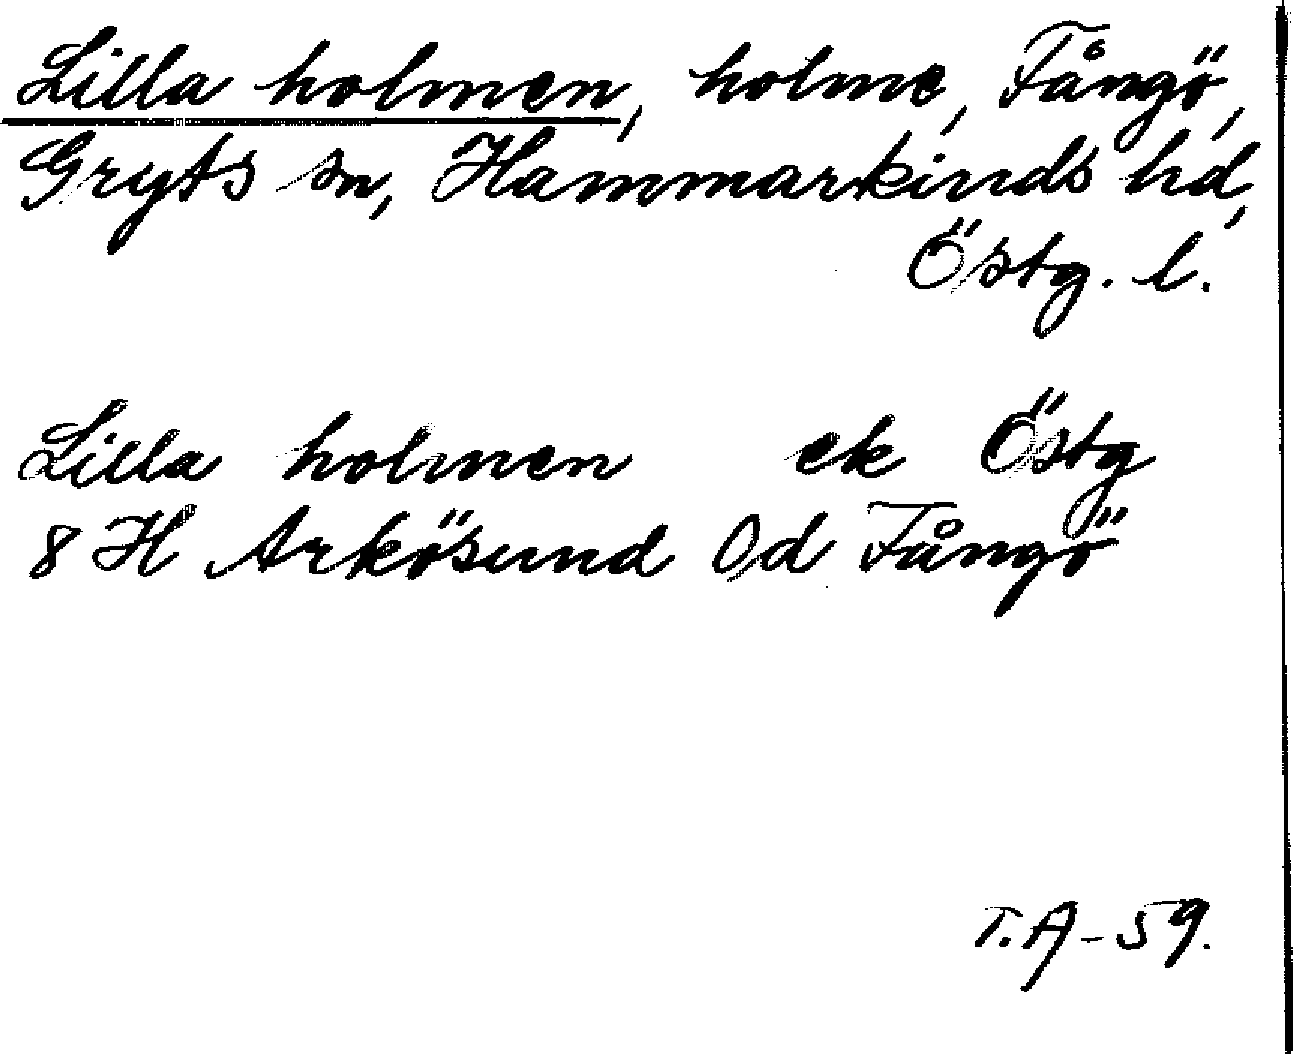 Lilla holmen, holme, Fångö,
Gryts sn, Hammarkinds hd,
Östg. l.
Lilla holmen ek Östg
8 H Arkösund Od Fångö
T.A-59.